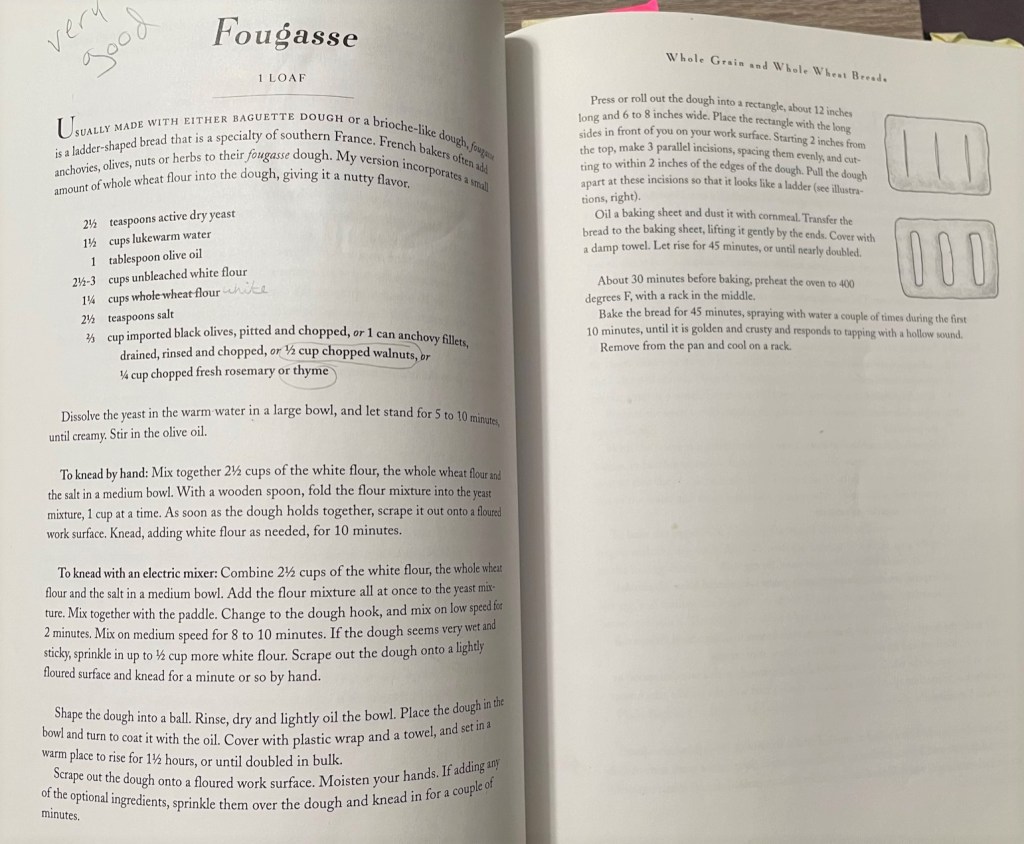 very
good
Fougasse
1 LOAF
USUALLY MADE WITH EITHER BAGUETTE DOUGH or a brioche-like dough, fougasse
is a ladder-shaped bread that is a specialty of southern France. French bakers often add
anchovies, olives, nuts or herbs to their fougasse dough. My version incorporates a small
amount of whole wheat flour into the dough, giving it a nutty flavor.
2½ teaspoons active dry yeast
1½ cups lukewarm water
1 tablespoon olive oil
2½-3 cups unbleached white flour
1¼ cups whole wheat flour white
2½ teaspoons salt
⅔ cup imported black olives, pitted and chopped, or 1 can anchovy fillets,
drained, rinsed and chopped, or ½ cup chopped walnuts, or
¼ cup chopped fresh rosemary or thyme
Dissolve the yeast in the warm water in a large bowl, and let stand for 5 to 10 minutes,
until creamy. Stir in the olive oil.
To knead by hand: Mix together 2½ cups of the white flour, the whole wheat flour and
the salt in a medium bowl. With a wooden spoon, fold the flour mixture into the yeast
mixture, 1 cup at a time. As soon as the dough holds together, scrape it out onto a floured
work surface. Knead, adding white flour as needed, for 10 minutes.
To knead with an electric mixer: Combine 2½ cups of the white flour, the whole wheat
flour and the salt in a medium bowl. Add the flour mixture all at once to the yeast mix-
ture. Mix together with the paddle. Change to the dough hook, and mix on low speed for
2 minutes. Mix on medium speed for 8 to 10 minutes. If the dough seems very wet and
sticky, sprinkle in up to ½ cup more white flour. Scrape out the dough onto a lightly
floured surface and knead for a minute or so by hand.
Shape the dough into a ball. Rinse, dry and lightly oil the bowl. Place the dough in the
bowl and turn to coat it with the oil. Cover with plastic wrap and a towel, and set in a
warm place to rise for 1½ hours, or until doubled in bulk.
Scrape out the dough onto a floured work surface. Moisten your hands. If adding any
of the optional ingredients, sprinkle them over the dough and knead in for a couple of
minutes.
Whole Grain and Whole Wheat Breads
Press or roll out the dough into a rectangle, about 12 inches
long and 6 to 8 inches wide. Place the rectangle with the long
sides in front of you on your work surface. Starting 2 inches from
the top, make 3 parallel incisions, spacing them evenly, and cut-
ting to within 2 inches of the edges of the dough. Pull the dough
apart at these incisions so that it looks like a ladder (see illustra-
tions, right).
Oil a baking sheet and dust it with cornmeal. Transfer the
bread to the baking sheet, lifting it gently by the ends. Cover with
a damp towel. Let rise for 45 minutes, or until nearly doubled.
About 30 minutes before baking, preheat the oven to 400
degrees F, with a rack in the middle.
Bake the bread for 45 minutes, spraying with water a couple of times during the first
10 minutes, until it is golden and crusty and responds to tapping with a hollow sound.
Remove from the pan and cool on a rack.